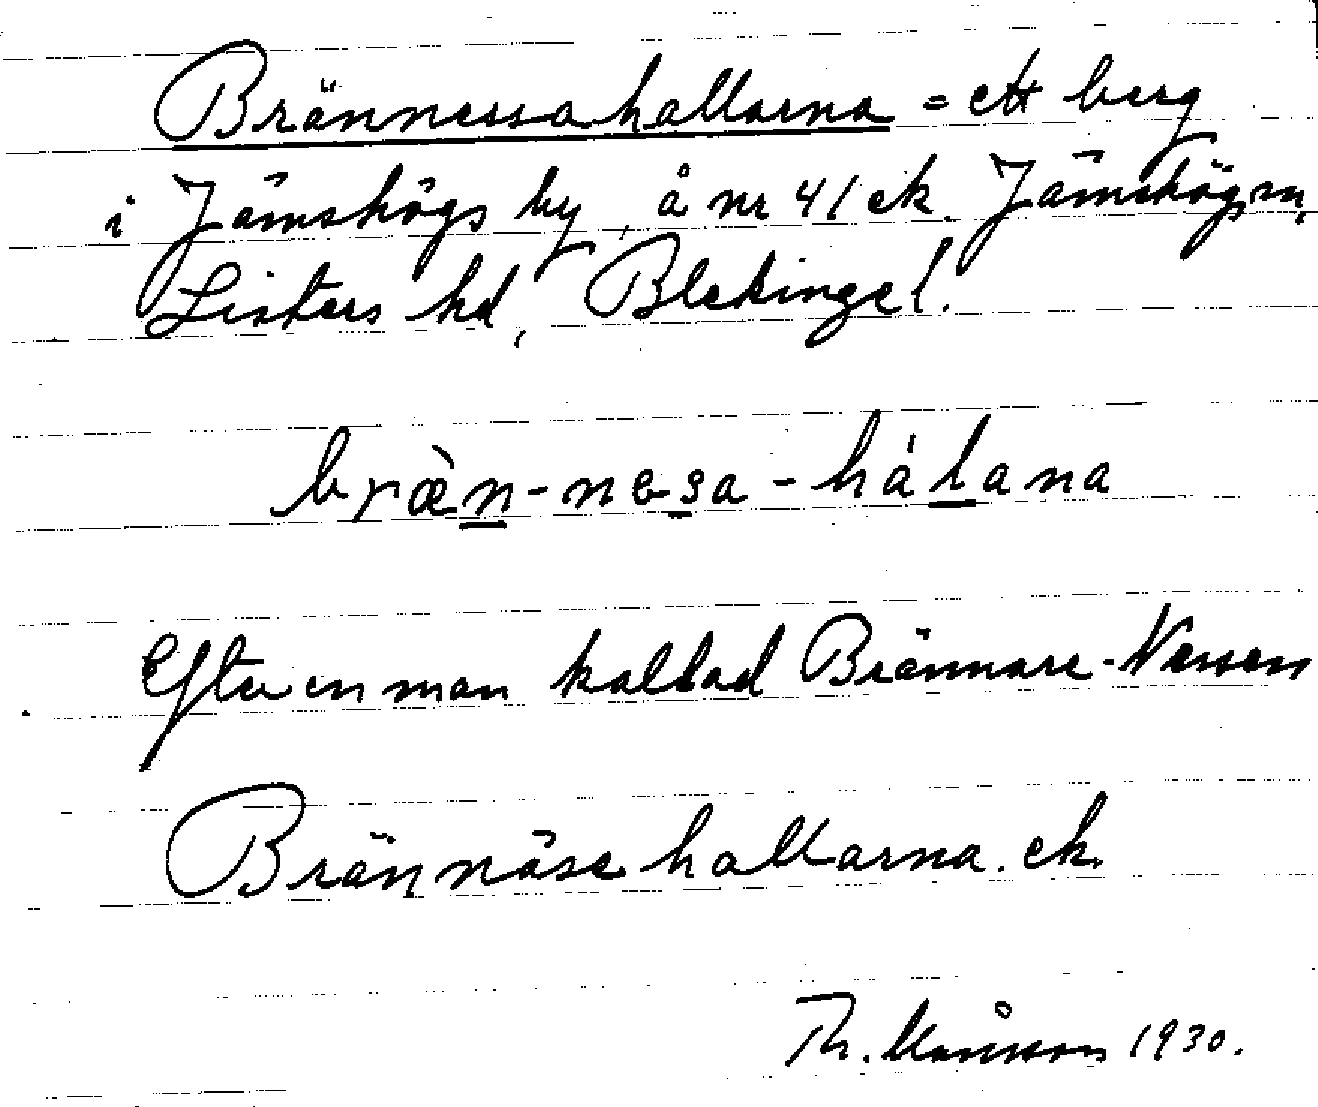 Brännessahallarna = ett berg
i Jämshögs by, å nr 41 ek. Jämshögs sn,
Listers hd, Blekinge l.
bræ̀n-nesa-hálana
Efter en man kallad Brännare-Nessen
Brännäsehallarna. ek.
Th. Månsson 1930.